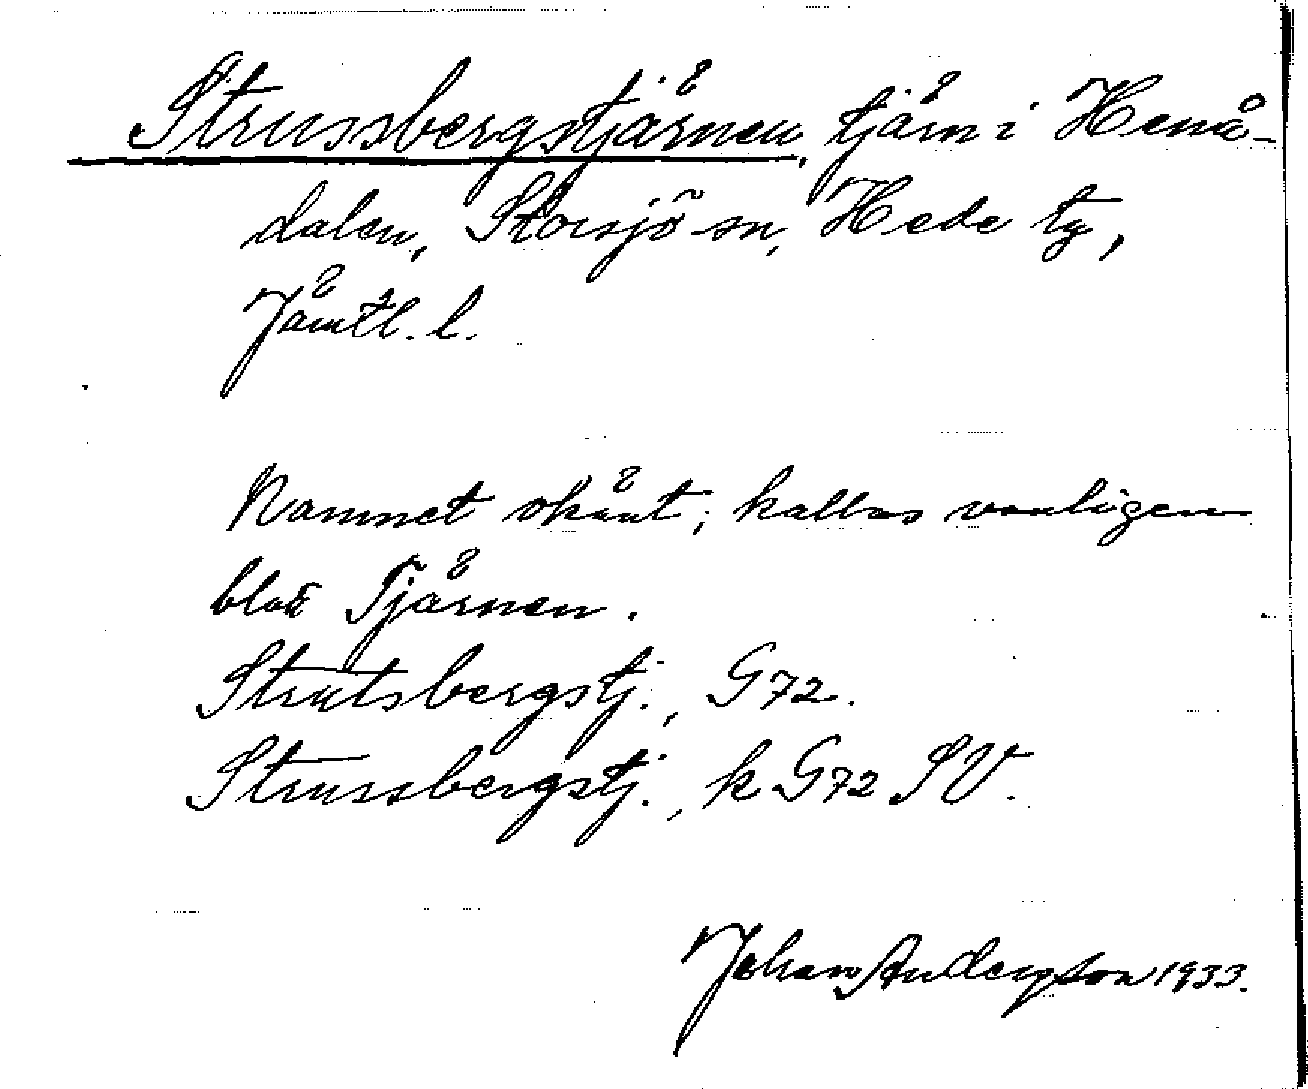 Strussbergstjärnen, tjärn i Henå-
dalen, Storsjö sn, Hede tg,
Jämtl. l.
Namnet okänt; kallas vanligen
blott Tjärnen.
Strutsbergstj., G72.
Strussbergstj., k G72 SV.
Johan Andersson 1933.